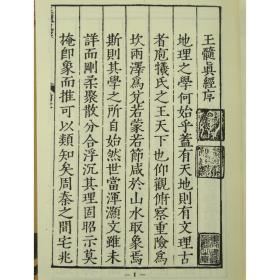 玉髓真經序
地理之學何始乎蓋有天地則有文理古
者庖犧氏之王天下也仰觀俯察重險爲
坎兩澤爲兌若蒙若節咸於山水取象焉
斯則其學之所自始然世當渾灝文雖未
詳而剛柔聚散分合浮沉其理固昭示莫
掩卽象而推可以類知矣周秦之間宅兆
— 1 —